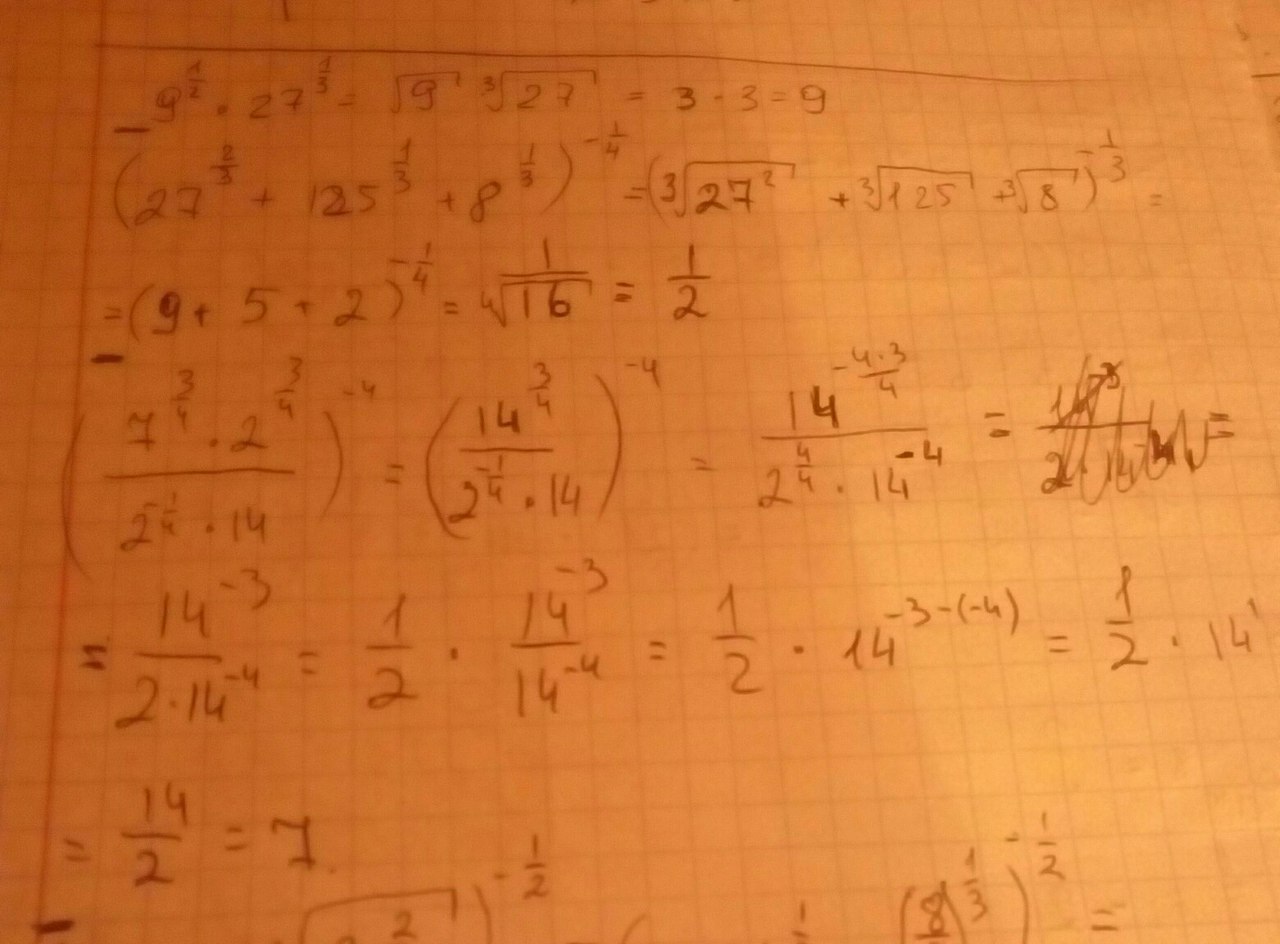 9^{1/2} · 27^{1/3} = √9 ∛27 = 3 · 3 = 9
(27^{2/3} + 125^{1/3} + 8^{1/3})^{-1/4} = (∛27² + ∛125 + ∛8)^{-1/3} =
= (9 + 5 + 2)^{-1/4} = 1/∜16 = 1/2
((7^{3/4} · 2^{3/4})/(2^{-1/4} · 14))^{-4} = (14^{3/4}/(2^{-1/4} · 14))^{-4} = 14^{-4·3/4}/(2^{4/4} · 14^{-4}) = =
= 14^{-3}/(2 · 14^{-4}) = 1/2 · 14^{-3}/14^{-4} = 1/2 · 14^{-3-(-4)} = 1/2 · 14^1
= 14/2 = 7